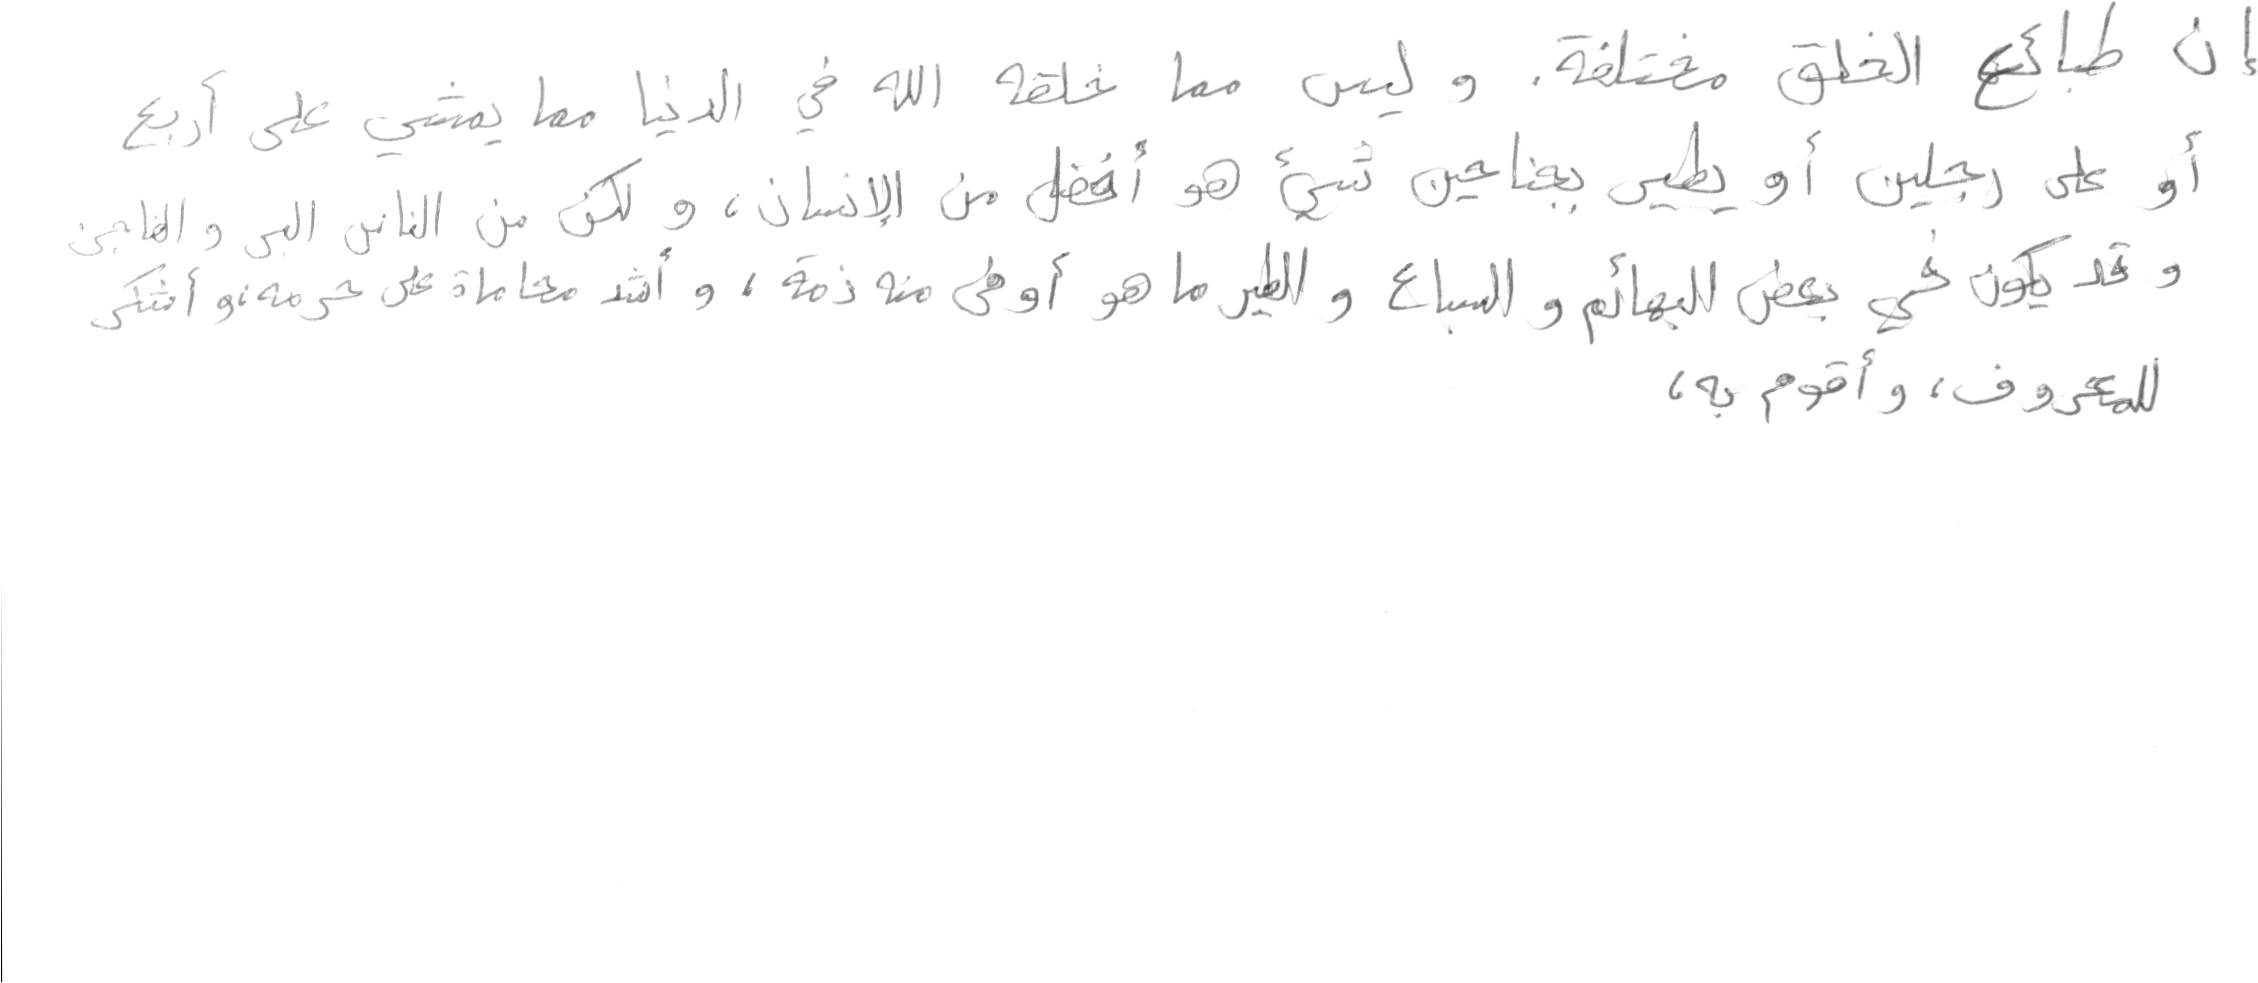 إن طبائع الخلق مختلفة. و ليس مما خلقه الله في الدنيا مما يمشي على أربع
أو على رجلين أو يطير بجناحين شيئ هو أفضل من الإنسان، و لكن من الناس البر و الفاجر.
و قد يكون في بعض البهائم و السباع و الطير ما هو أوفى منه ذمة، و أشد محاماة على حرمه، و أشكر
للمعروف، و أقوم به،